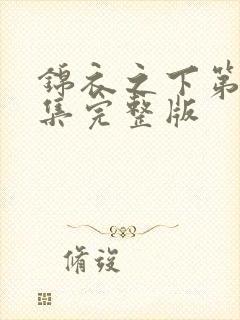 錦衣之下第
集完整版
脩竣